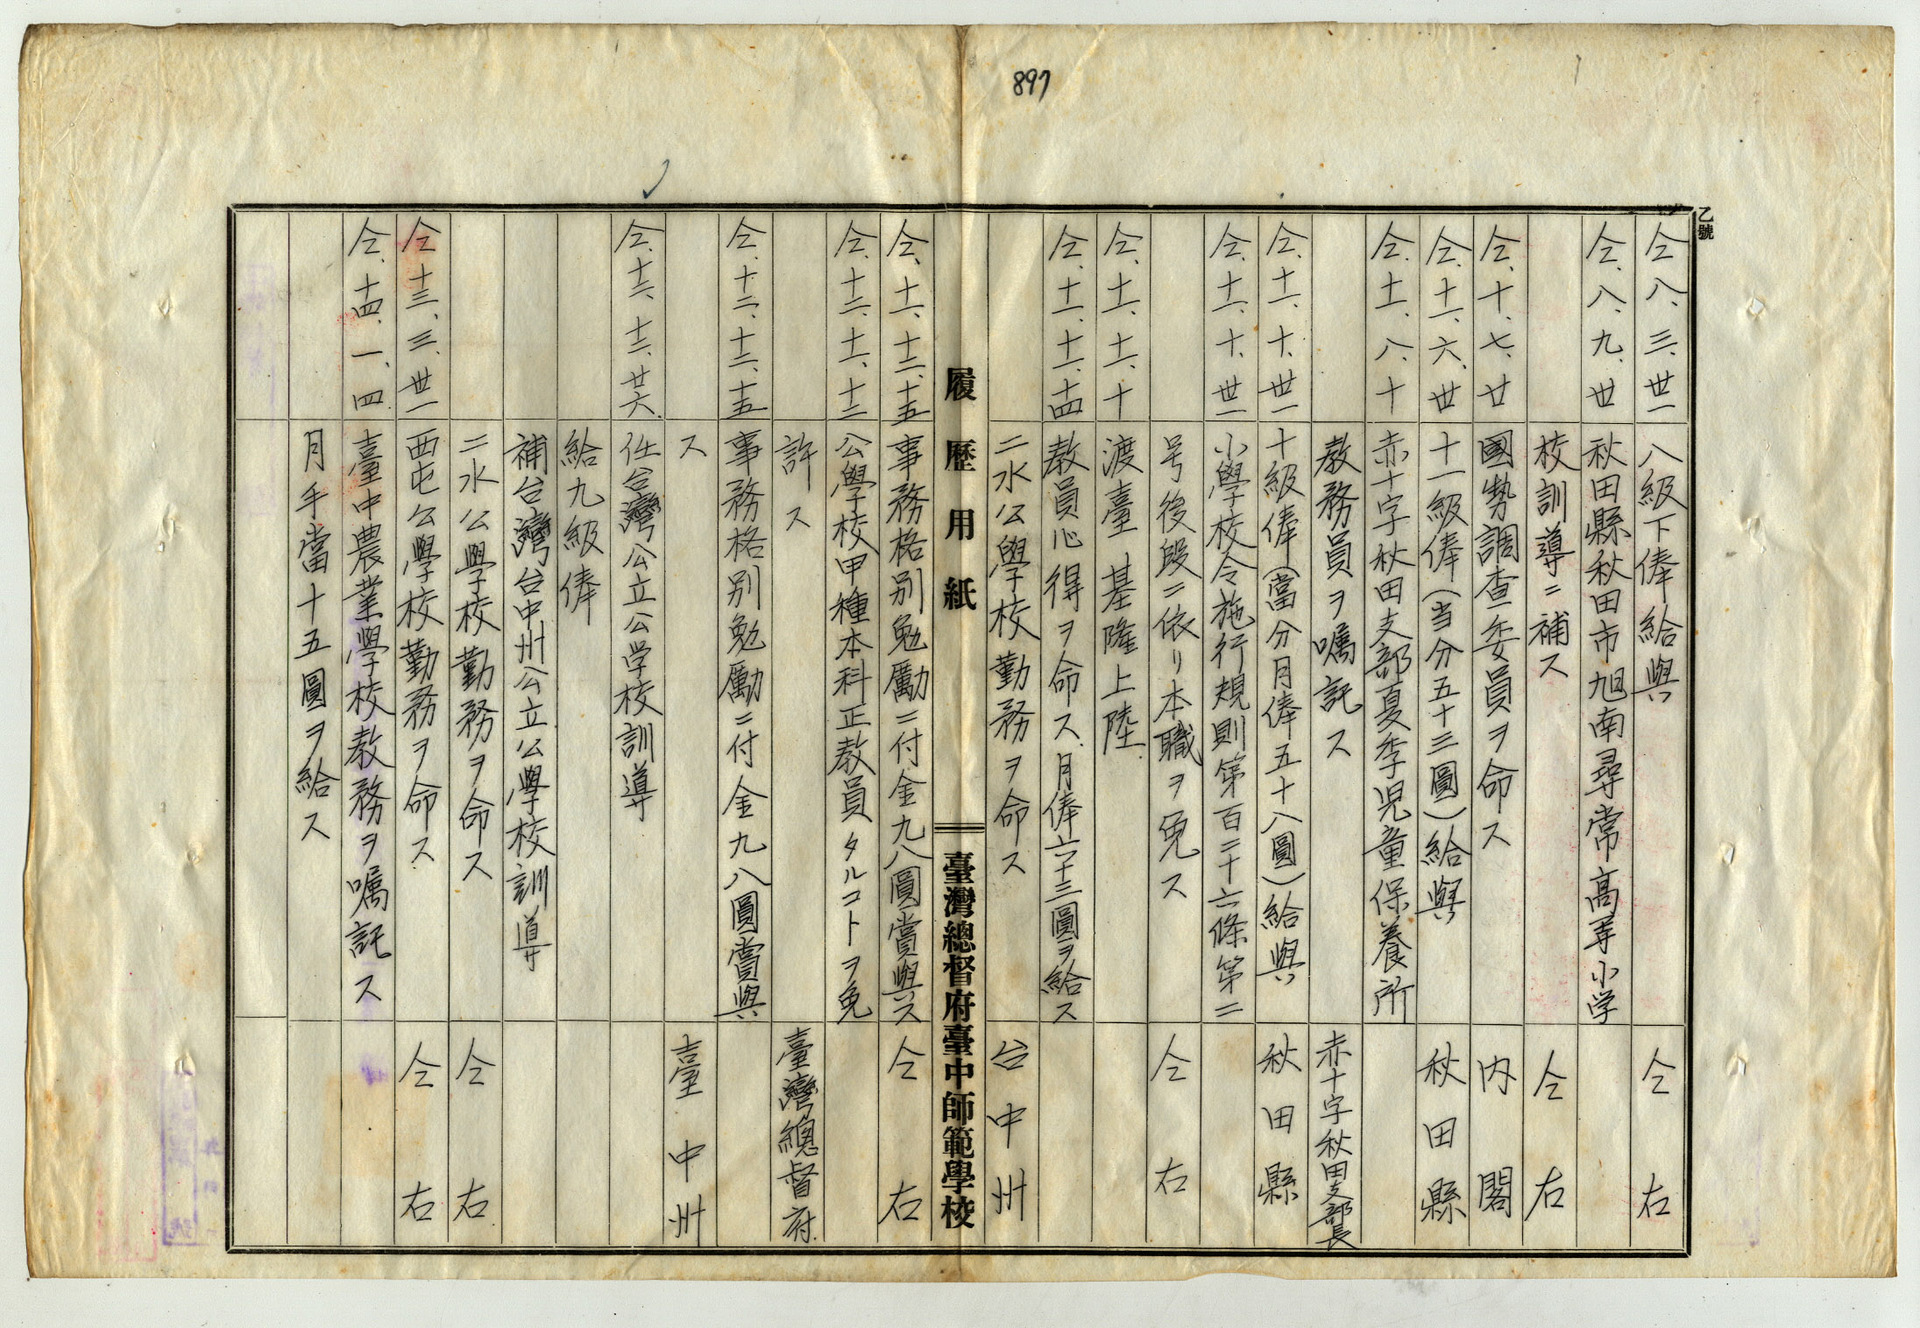 897
乙號
仝、八、三、卅一 八級下俸給與 仝右
仝、八、九、廿 秋田縣秋田市旭南尋常高等小学
校訓導ニ補ス 仝右
仝、十、七、廿 國勢調査委員ヲ命ス 内閣
仝、十一、六、廿 十一級俸(当分五十三圓)給與 秋田縣
仝、十一、八、十 赤十字秋田支部夏季児童保養所
教務員ヲ嘱託ス 赤十字秋田支部長
仝、十一、十、卅一 十級俸(當分月俸五十八圓)給與 秋田縣
仝、十一、十、卅一 小學校令施行規則第百二十六條第二
号後段ニ依リ本職ヲ免ス 仝右
仝、十一、十一、十 渡臺 基隆上陸
仝、十一、十一、十四 教員心得ヲ命ス、月俸六十三圓ヲ給ス
二水公學校勤務ヲ命ス 台中州
履歴用紙
臺灣總督府臺中師範學校
仝、十一、十二、十五 事務格別勉勵ニ付金九八圓賞與ス 仝右
仝、十二、十一、十二 公學校甲種本科正教員タルコトヲ免
許ス 臺灣總督府
仝、十二、十二、十五 事務格別勉勵ニ付金九八圓賞與
ス 臺中州
仝、十二、十二、廿六 任台灣公立公学校訓導
給九級俸
補台灣台中州公立公學校訓導
二水公學校勤務ヲ命ス 仝右
仝、十三、三、卅一 西屯公學校勤務ヲ命ス 仝右
仝、十四、一、四 臺中農業學校教務ヲ嘱託ス
月手當十五圓ヲ給ス